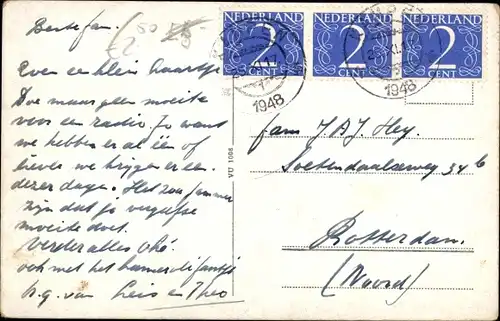 Beste fam.
Even een klein kaartje
Doe maar geen moeite
voor een radio. Jo want
we hebben er al één of
liever we krijgen er een
dezer dagen. Het zou jammer
zijn dat je vergeefse
moeite doet.
Verder alles Oké
ook met het
h.g. van Leis en Theo
VU 1006
NEDERLAND
2
CENT
NEDERLAND
2
CENT
NEDERLAND
2
CENT
1948
1948
fam. J A J. Hey.
34 b
Rotterdam.
(Noord)